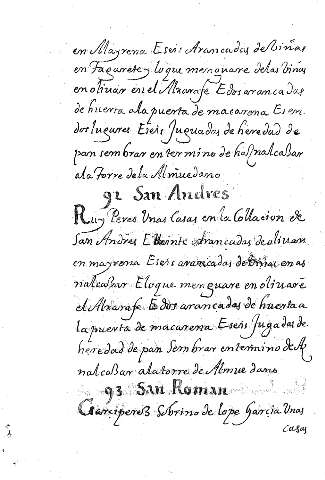 en Mayrena E seis Arancadas de Viñas
en Fagarete y loque menguare de las Viñas
en olivar en el Alxarafe E dos arancadas
de huerta a la puerta de macarena E sen
dos lugares E seis Juguadas de heredad de
pan sembrar en termino de haſnalcaBar
a la Torre de la Almuedano
92 San Andres
Ruy Peres Unas Casas en la Collacion de
San Andres E Veinte Arancadas de olivar
en mayrena E seis arancadas de Viñas en as
nalcaBar E loque menguare en olivar e
el Alxarafe E dos arancadas de huerta a
la puerta de macarena E seis Jugadas de
heredad de pan Sembrar en termino de As
nalcaBar a la torre de Almuedano
93 San Roman
Garciperes Sobrino de lope Garcia Unas
Casas